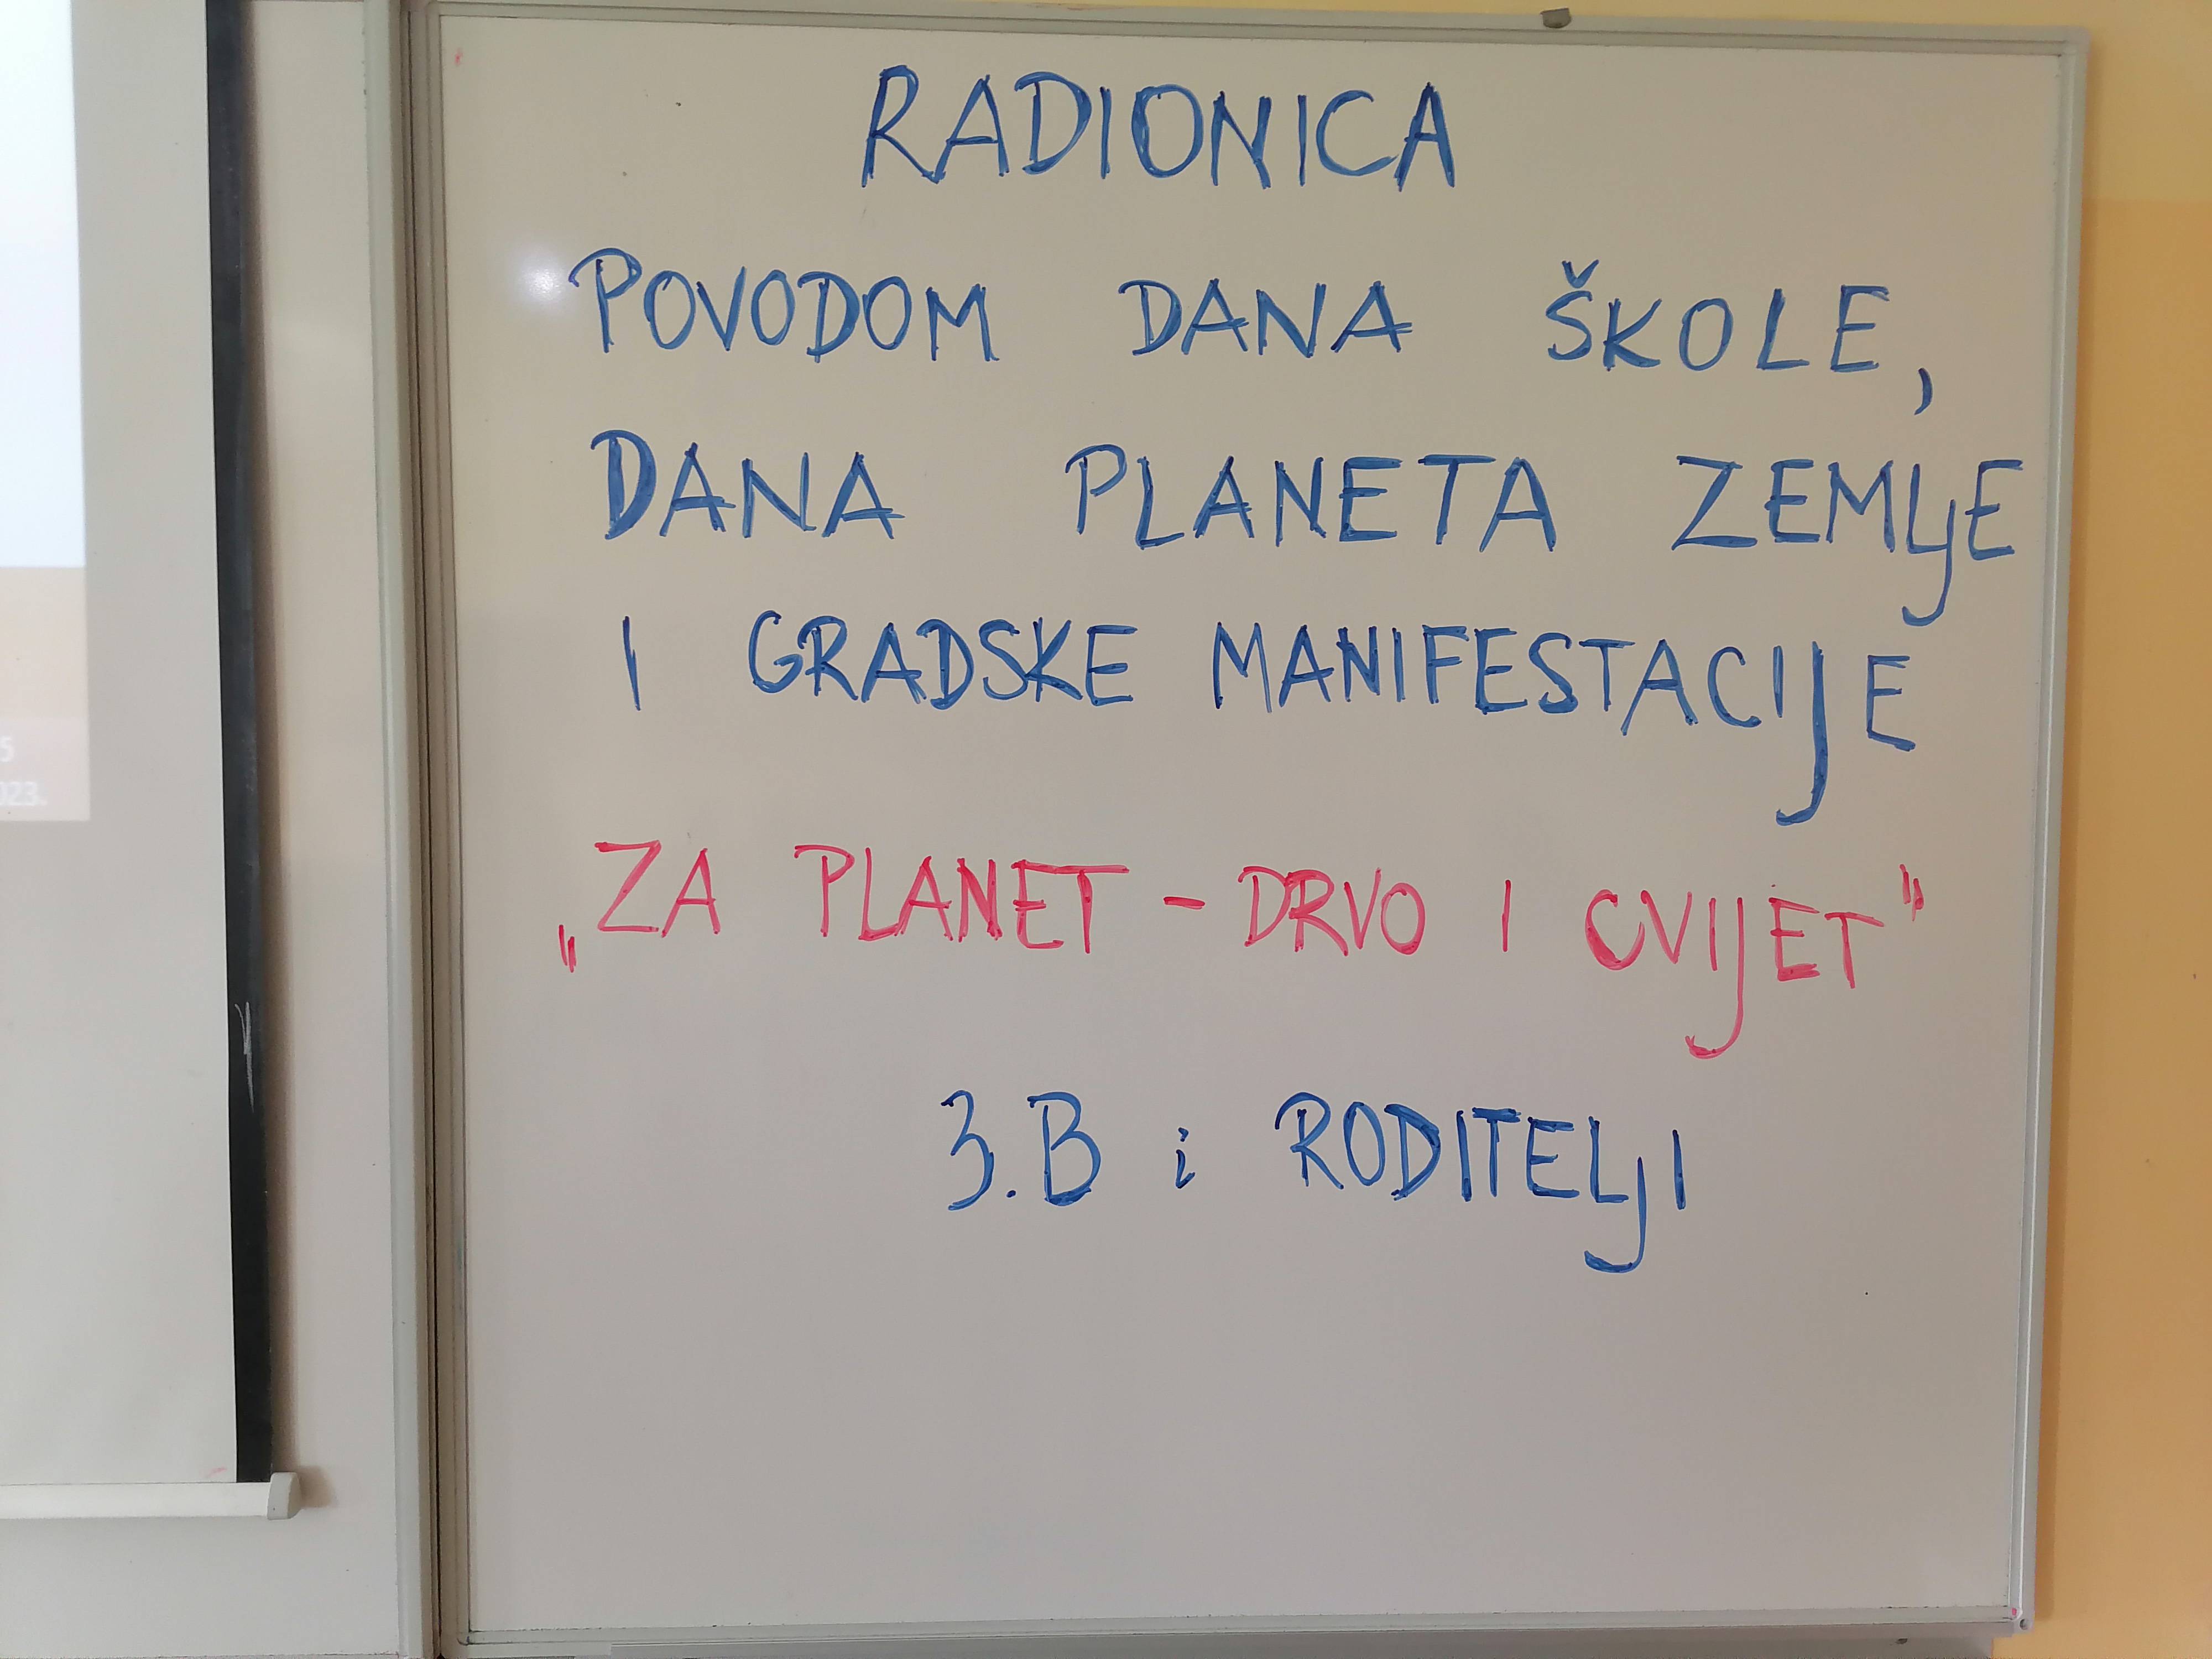 RADIONICA
POVODOM DANA ŠKOLE,
DANA PLANETA ZEMLJE
I GRADSKE MANIFESTACIJE
„ZA PLANET - DRVO I CVIJET"
3.B i RODITELJI